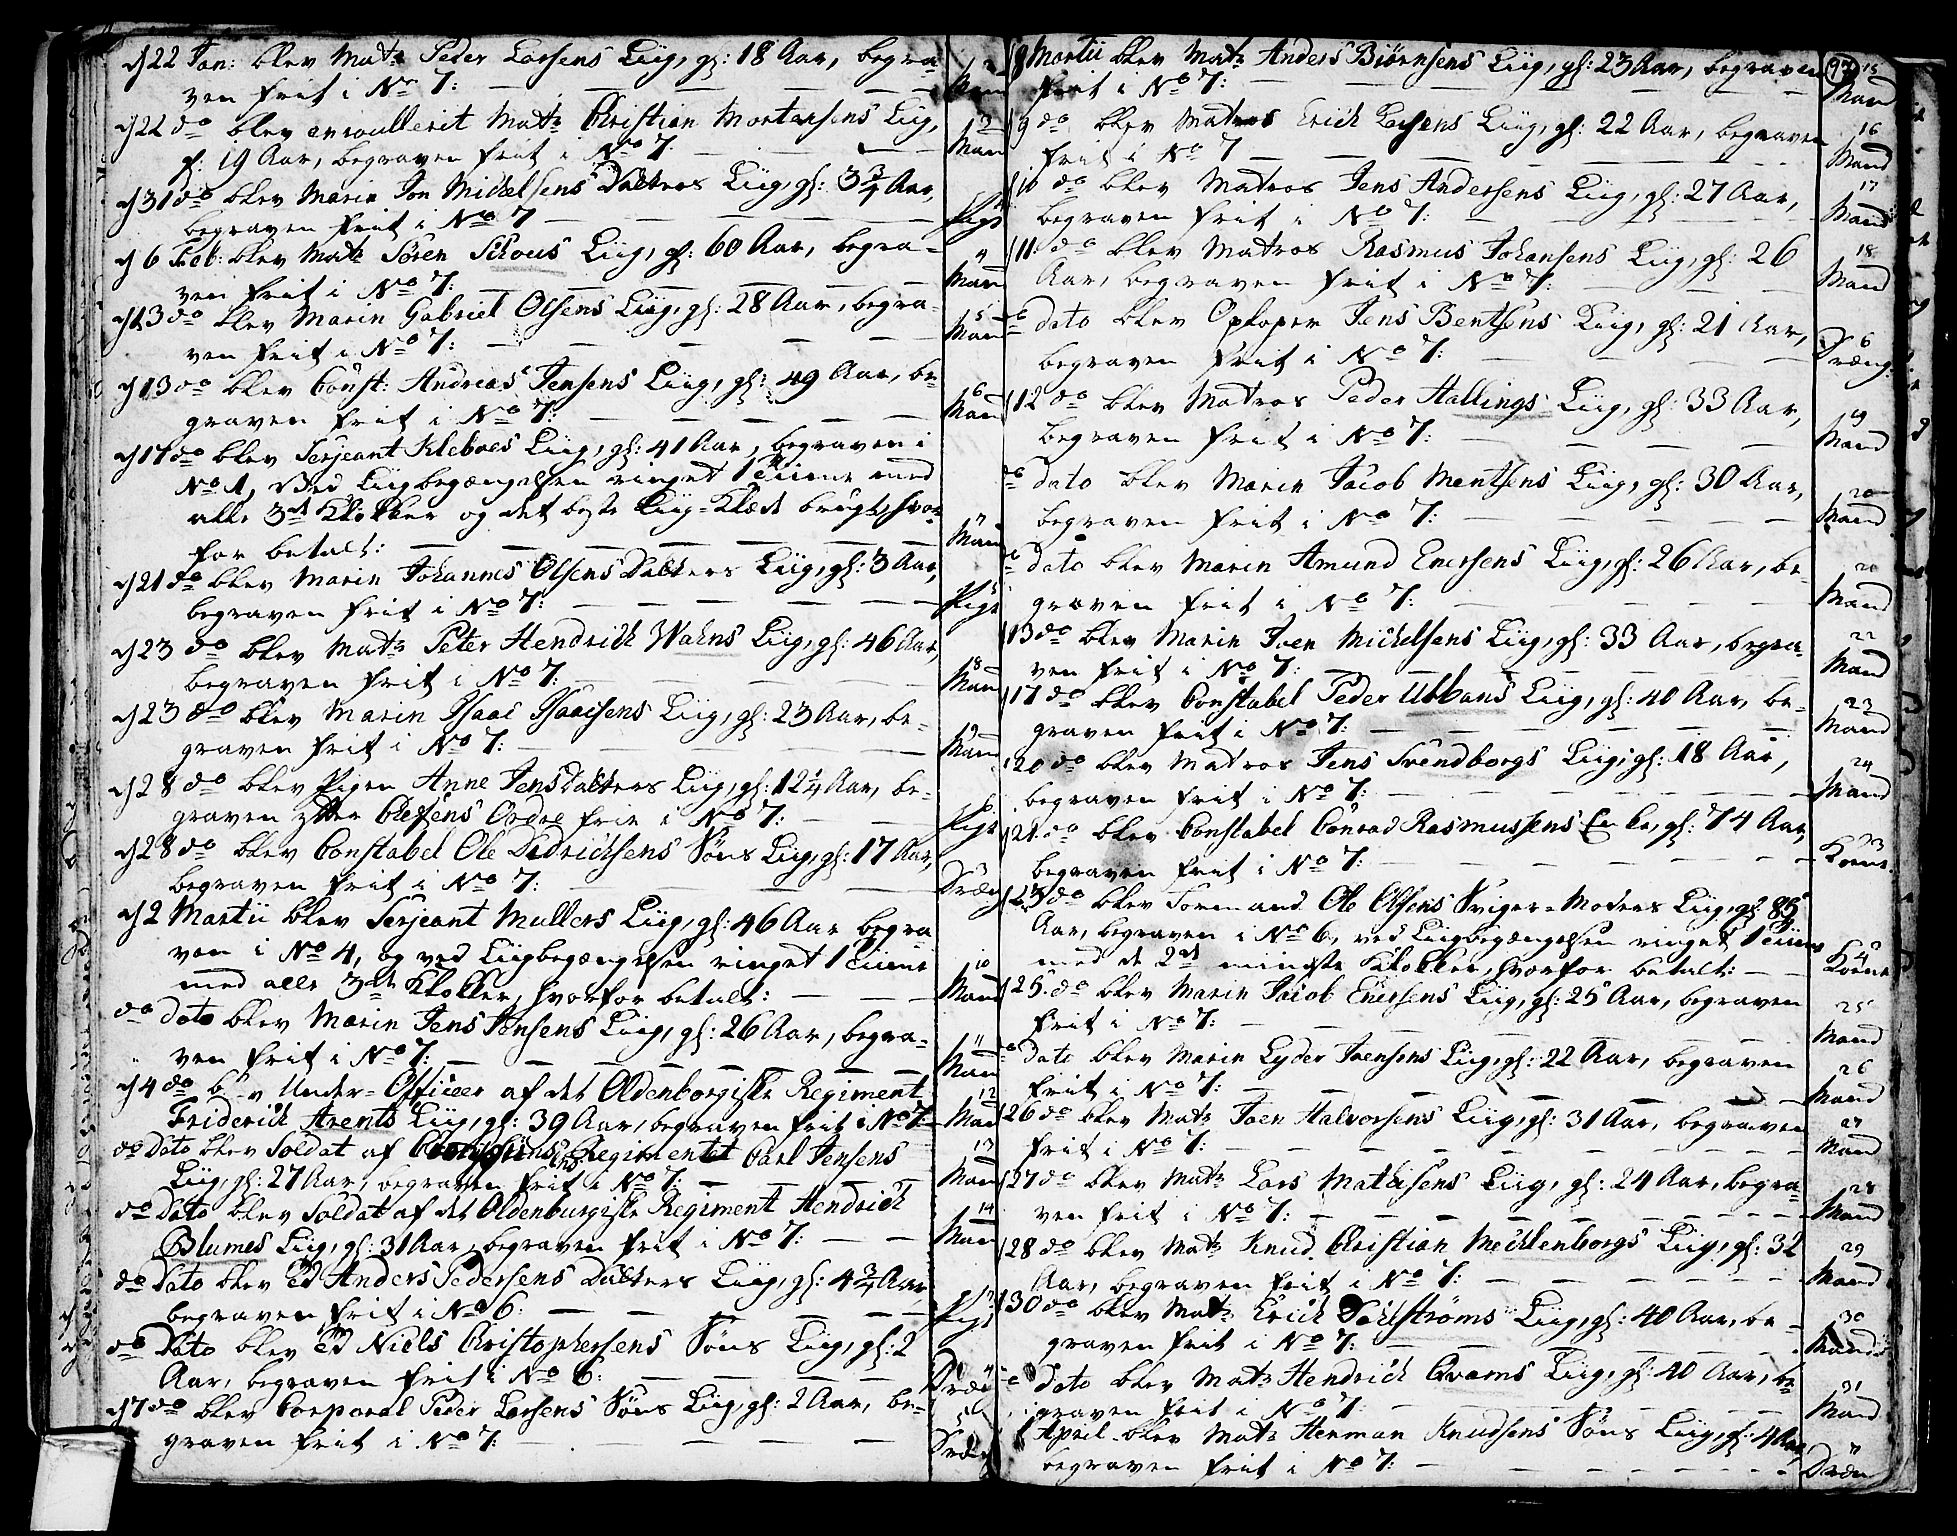 d 22 Jan: blev Mat: Peder Larsens Liig, gl: 18 Aar, begra-
ven frit i No 7:
d 22 do blev enroullerit Mat: Christian Mortensens Liig,
gl: 19 Aar, begraven frit i No 7
Man
d 31 do blev Marin Jon Michelsens Datters Liig, gl: 3 3/4 Aar,
begraven frit i No 7
Pige
d 6 Feb: blev Mat: Sören Schous Liig, gl: 60 Aar, begra-
ven frit i No 7:
4 Man
d 13 do blev Marin Gabriel Olsens Liig, gl: 28 Aar, begra-
ven frit i No 7:
5 Man
d 13 do blev Const: Andreas Jensens Liig, gl: 49 Aar, be-
graven frit i No 7:
6 Man
d 17 do blev Serjeant Kleboes Liig, gl: 41 Aar, begraven i
No 1, Ved Liigbegængelsen ringet 1 Tiime med
alle 3de Klokker og det beste Liig-Klæde brugt, hvor-
for betalt:
7 Man
d 21 do blev Marin Johannes Olsens Datters Liig, gl: 3 Aar,
begraven frit i No 7:
Pige
d 23 do blev Mat: Peter Hendrich Wahns Liig, gl: 46 Aar,
begraven frit i No 7:
8 Man
d 23 do blev Marin Isaac Isaacsens Liig, gl: 23 Aar, be-
graven frit i No 7:
9 Man
d 28 do blev Pigen Anne Jens Datters Liig, gl: 12 1/4 Aar, be-
graven efter Chefens Ordre frie i No 7:
Pige
d 28 do blev Constabel Ole Dedrichsens Söns Liig, gl: 17 Aar,
begraven frit i No 7:
Dræng
d 2 Martii blev Serjeant Mullers Liig, gl: 46 Aar begra-
ven i No 4, og ved Liigbegængelsen ringet 1 Tiime
med alle 3de Klokker, hvorfor betalt:
10 Mand
do Dato blev Marin Jens Jensens Liig, gl: 26 Aar, begra-
ven frit i No 7:
11 Man
d 4 do blev Under-Officeer af det Oldenborgiske Regiment
Friderich Arents Liig, gl: 39 Aar, begraven frit i No 7
12 Man
do Dato blev Soldat af Regimentet Carl Jensens
Liig, gl: 27 Aar, begraven frit i No 7:
13 Man
do Dato blev Soldat af det Oldenburgiske Regiment Hendrich
Blumes Liig, gl: 31 Aar, begraven frit i No 7:
14 Man
do Dato blev Anders Pedersens Datters Liig, gl: 4 3/4 Aar
begraven frit i No 6:
Pige
do Dato blev Niels Christophersens Söns Liig, gl: 2
Aar, begraven frit i No 6:
d 7 do blev Corporal Peder Larsens Söns Liig, gl: 2 Aar, be-
graven frit i No 7:
5
97
8 Martii blev Mat: Anders Biörnsens Liig, gl: 23 Aar, begraven
frit i No 7:
15 Mand
9 do blev Matros Erich Larsens Liig, gl: 22 Aar, begraven
frit i No 7
16 Mand
10 do blev Matros Jens Andersens Liig, gl: 27 Aar,
begraven frit i No 7:
17 Mand
11 do blev Matros Rasmus Johansens Liig, gl: 26
Aar, begraven frit i No 7:
18 Mand
dato blev Oploper Jens Bentsens Liig, gl: 21 Aar,
begraven frit i No 7:
6 Dræng:
12 do blev Matros Peder Hallings Liig, gl: 33 Aar,
begraven frit i No 7:
19 Mand
do dato blev Marin Jacob Mentsens Liig, gl: 30 Aar,
begraven frit i No 7:
20 Mand
dato blev Marin Amund Enersens Liig, gl: 26 Aar, be-
graven frit i No 7:
21 Mand
13 do blev Marin Iven Michelsens Liig, gl: 33 Aar, begra-
ven frit i No 7:
22 Mand
17 do blev Constabel Peder Ubbans Liig, gl: 40 Aar, be-
graven frit i No 7:
23 Mand
20 do blev Matros Jens Svendborgs Liig, gl: 18 Aar,
begraven frit i No 7:
24 Mand
21 do blev Constabel Conrad Rasmussens Enke, gl: 74 Aar,
begraven frit i No 7:
3 Kone
23 do blev Tömmermand Ole Olsens Sviger-Moders Liig, gl 85
Aar, begraven i No 6, ved Liigbegængelsen ringet 1 Tiime
med de 2de mindste Klokker, hvorfor betalt:
4 Kone
25 do blev Marin Jacob Enersens Liig, gl: 25 Aar, begraven
frit i No 7:
25 Mand
dato blev Marin Lyder Ivensens Liig, gl: 22 Aar, begraven
frit i No 7:
26 Mand
26 do blev Mat: Iven Halvorsens Liig, gl: 31 Aar, begraven
frit i No 7:
27 Mand
27 do blev Mat: Lars Mathisens Liig, gl: 24 Aar, begra-
ven frit i No 7:
28 Mand
28 do blev Mat: Knud Christian Mechlenborgs Liig, gl: 32
Aar, begraven frit i No 7:
29 Mand
30 do blev Mat: Erich Dahlströms Liig, gl: 40 Aar, be-
graven frit i No 7:
30 Mand
dato blev Mat: Hendrich Qvams Liig, gl: 40 Aar, be-
graven frit i No 7:
31 Mand
1 April blev Mat: Herman Knudsens Söns Liig, gl: 4 Aar,
begraven frit i No 7: